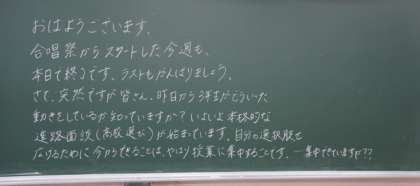 おはようございます。
合唱祭からスタートした今週も、
本日で終わりです。ラストもがんばりましょう。
さて、突然ですが皆さん、昨日から3年生がどういった
動きをしているか知っていますか？いよいよ本格的な
進路面談(高校選び)が始まっています。自分の選択肢を
広げるために今からできることは、やはり授業に集中することです。一集中できていますか??